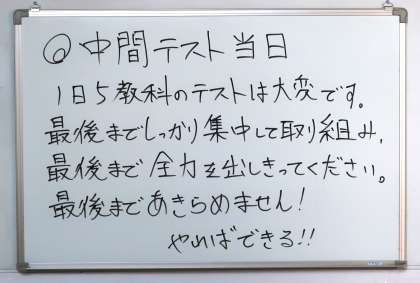 ◎中間テスト当日
1日5教科のテストは大変です。
最後までしっかり集中して取り組み,
最後まで全力を出しきってください。
最後まであきらめません!
やればできる!!